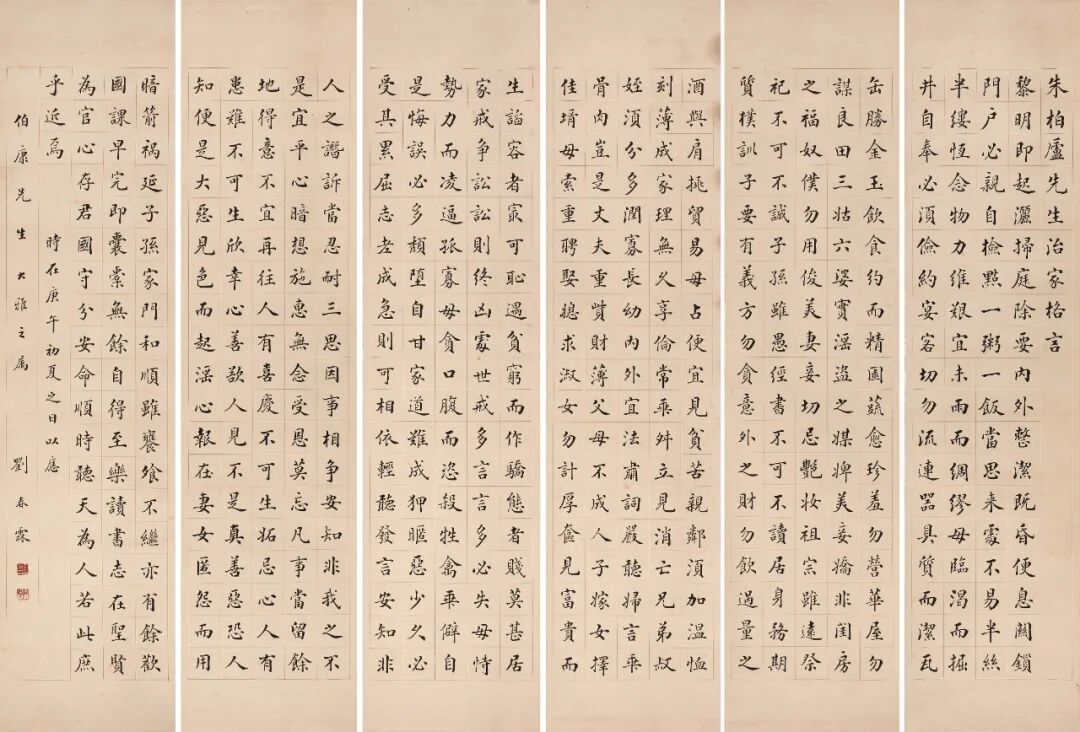 朱柏廬先生治家格言
黎明即起灑掃庭除要內外整潔既昏便息關鎖
門戶必親自檢點一粥一飯當思来處不易半絲
半縷恆念物力維艱宜未雨而綢繆毋臨渴而掘
井自奉必須儉約宴客切勿流連器具質而潔瓦
缶勝金玉飲食約而精園蔬愈珍羞勿營華屋勿
謀良田三姑六婆實淫盜之媒婢美妾嬌非閨房
之福奴僕勿用俊美妻妾切忌艷妝祖宗雖遠祭
祀不可不誠子孫雖愚經書不可不讀居身務期
質樸訓子要有義方勿貪意外之財勿飲過量之
酒與肩挑貿易毋占便宜見貧苦親鄰須加溫恤
刻薄成家理無久享倫常乖舛立見消亡兄弟叔
姪須分多潤寡長幼內外宜法肅詞嚴聽婦言乖
骨肉豈是丈夫重貲財薄父母不成人子嫁女擇
佳壻毋索重聘娶媳求淑女勿計厚奩見富貴而
生諂容者最可恥遇貧窮而作驕態者賤莫甚居
家戒争訟訟則終凶處世戒多言言多必失毋恃
勢力而凌逼孤寡毋貪口腹而恣殺牲禽乖僻自
是悔誤必多頹墮自甘家道難成狎暱惡少久必
受其累屈志老成急則可相依輕聽發言安知非
人之譖訴當忍耐三思因事相争安知非我之不
是宜平心暗想施惠無念受恩莫忘凡事當留餘
地得意不宜再往人有喜慶不可生妬忌心人有
患難不可生欣幸心善欲人見不是真善惡恐人
知便是大惡見色而起淫心報在妻女匿怨而用
暗箭禍延子孫家門和順雖饔飧不繼亦有餘歡
國課早完即囊橐無餘自得至樂讀書志在聖賢
為官心存君國守分安命順時聽天為人若此庶
乎近焉 時在庚午初夏之日以應
伯康先生大雅之屬 劉春霖